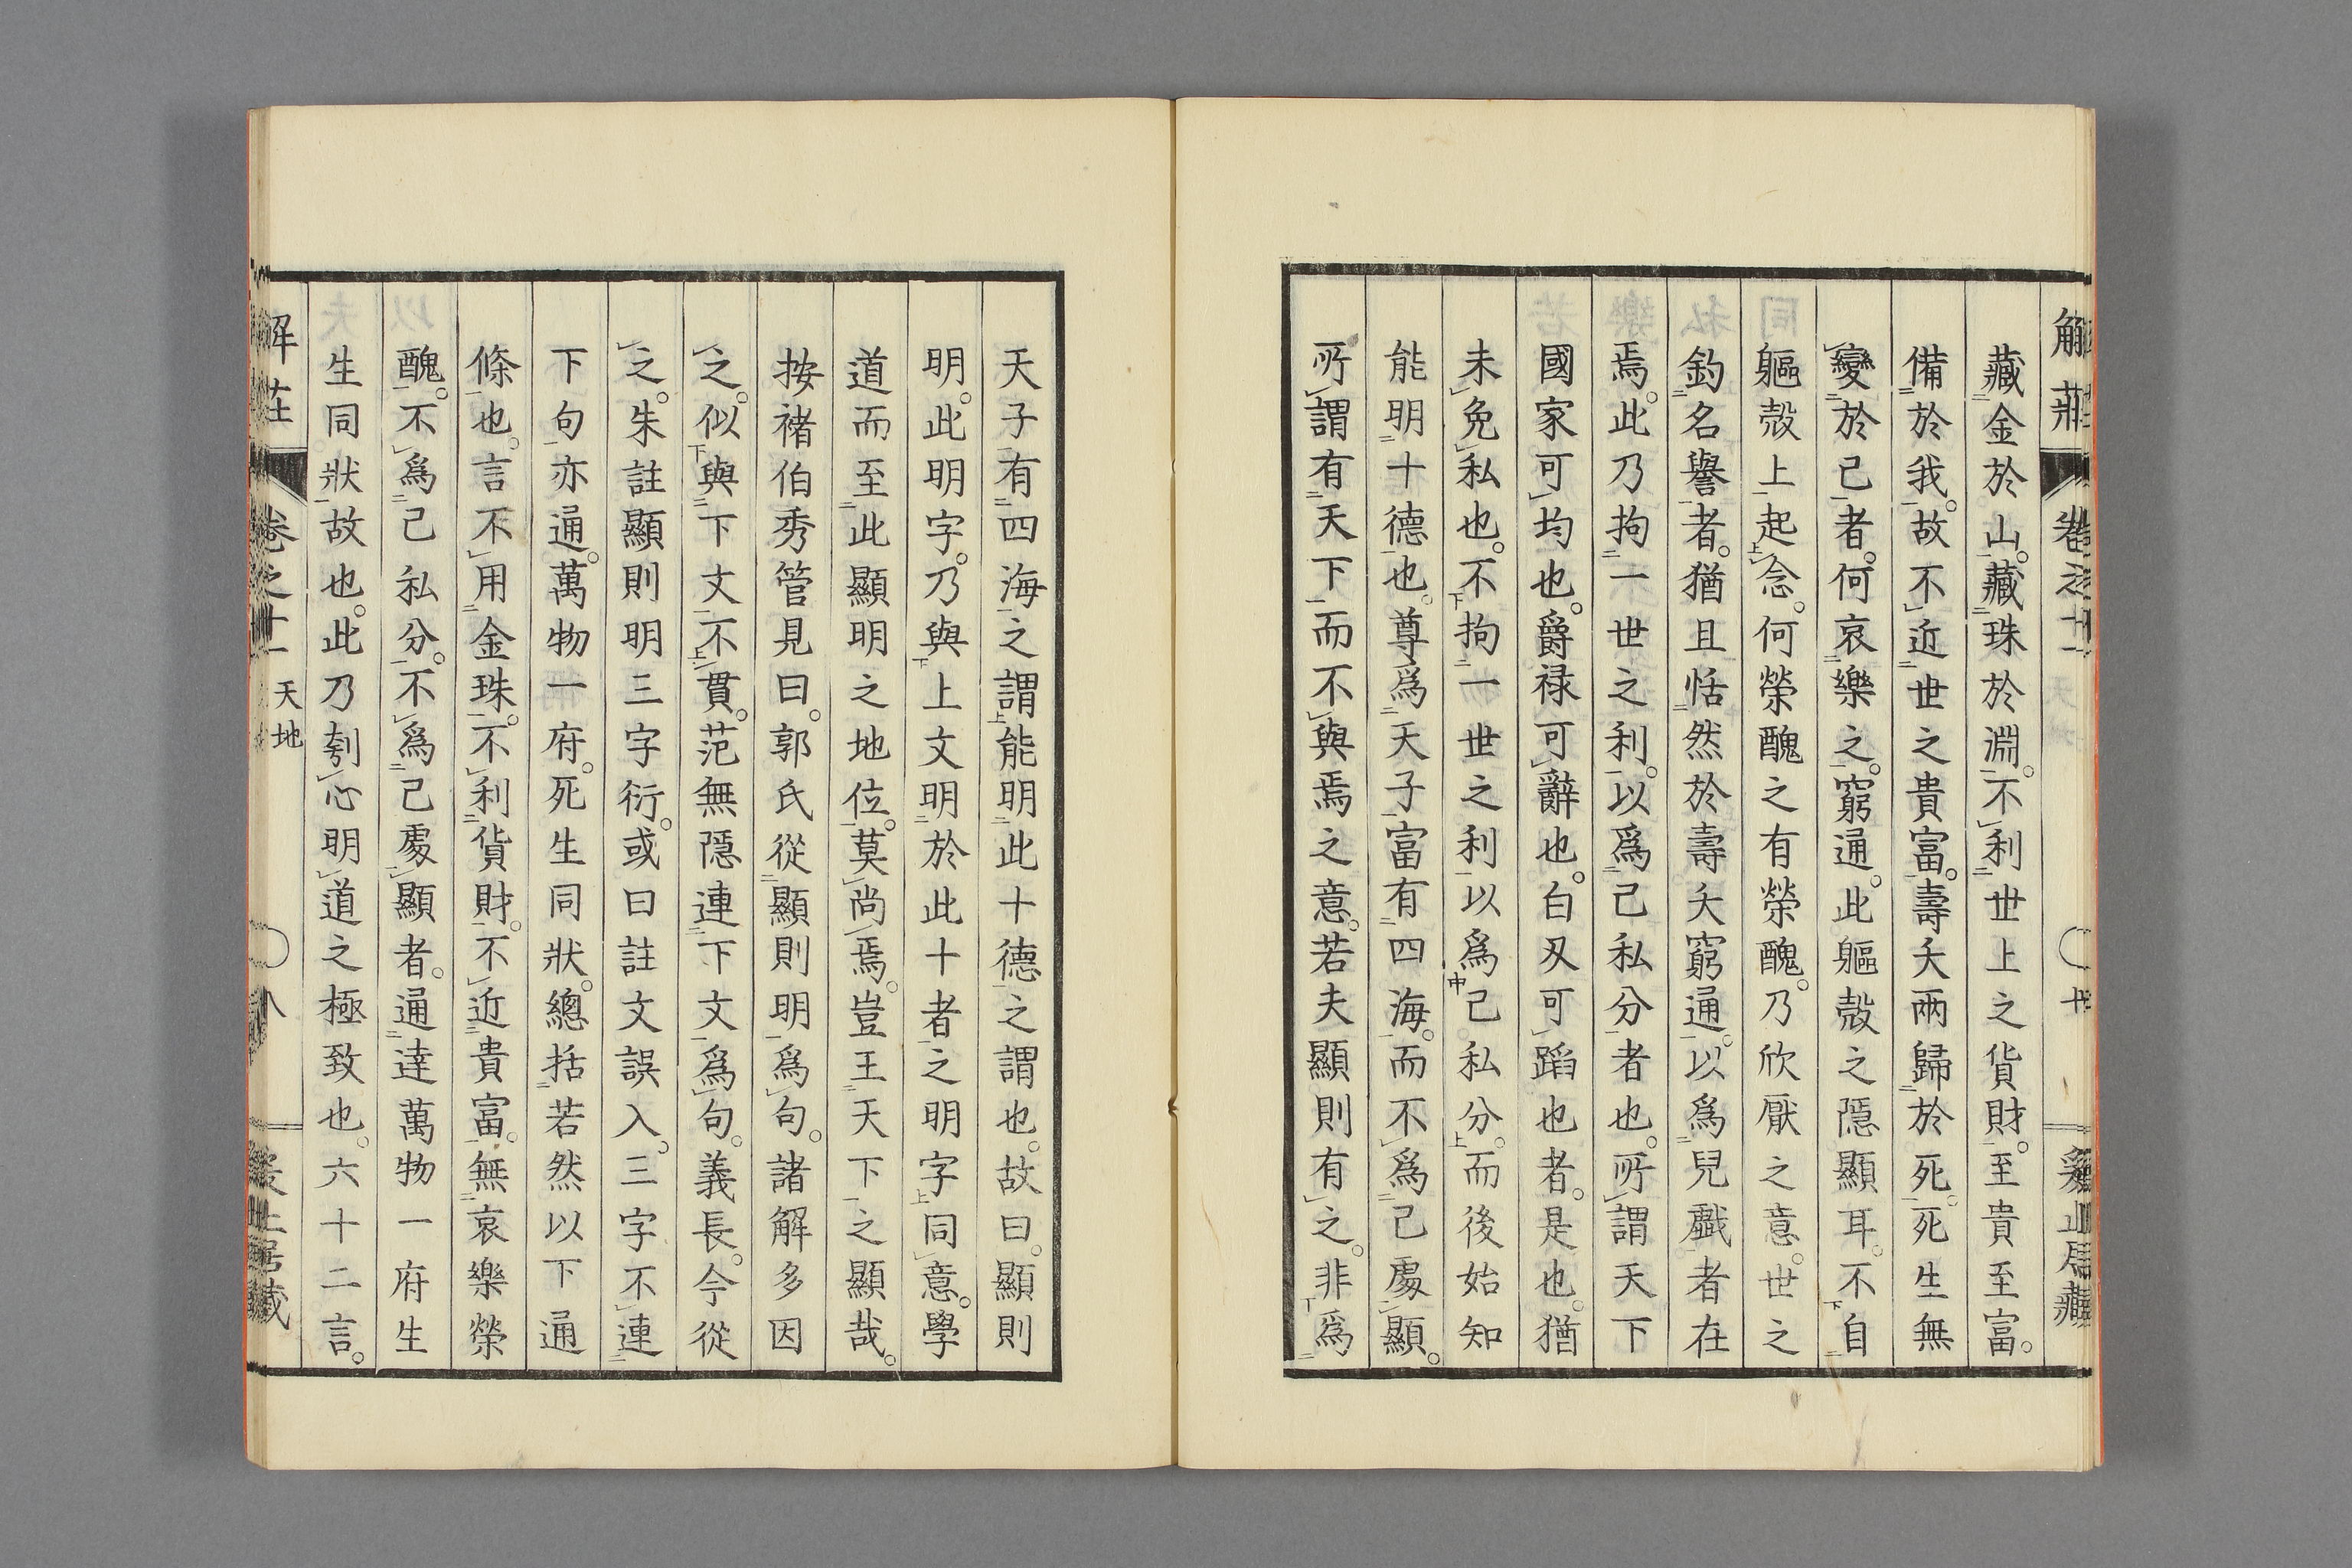 藏金於山。藏珠於淵。不利世上之貨財。至貴至富。
備於我。故不近世之貴富。壽夭兩歸於死。死生無
變於己者。何哀樂之。窮通。此軀殼之隱顯耳。不自
軀殼上起念。何榮醜之有榮醜。乃欣厭之意。世之
釣名譽者。猶且恬然於壽夭窮通。以爲兒戲者在
焉。此乃拘一世之利。以爲己私分者也。所謂天下
國家可均也。爵祿可辭也。白刃可蹈也者。是也。猶
未免私也。不拘一世之利以爲己私分。而後始知
能明十德也。尊爲天子富有四海。而不爲己處顯。
所謂有天下而不與焉之意。若夫顯則有之。非爲
天子有四海之謂能明此十德之謂也。故曰。顯則
明。此明字。乃與上文明於此十者之明字同意。學
道而至此顯明之地位。莫尚焉。豈王天下之顯哉。
按褚伯秀管見曰。郭氏從顯則明爲句。諸解多因
之。似與下文不貫。范無隱連下文爲句。義長。今從
之。朱註顯則明三字衍。或曰註文誤入。三字不連
下句亦通。萬物一府。死生同狀。總括若然以下通
條也。言不用金珠。不利貨財。不近貴富。無哀樂榮
醜。不爲己私分。不爲己處顯者。通達萬物一府生
生同狀故也。此乃刳心明道之極致也。六十二言。
解莊
卷之十二 天地
八